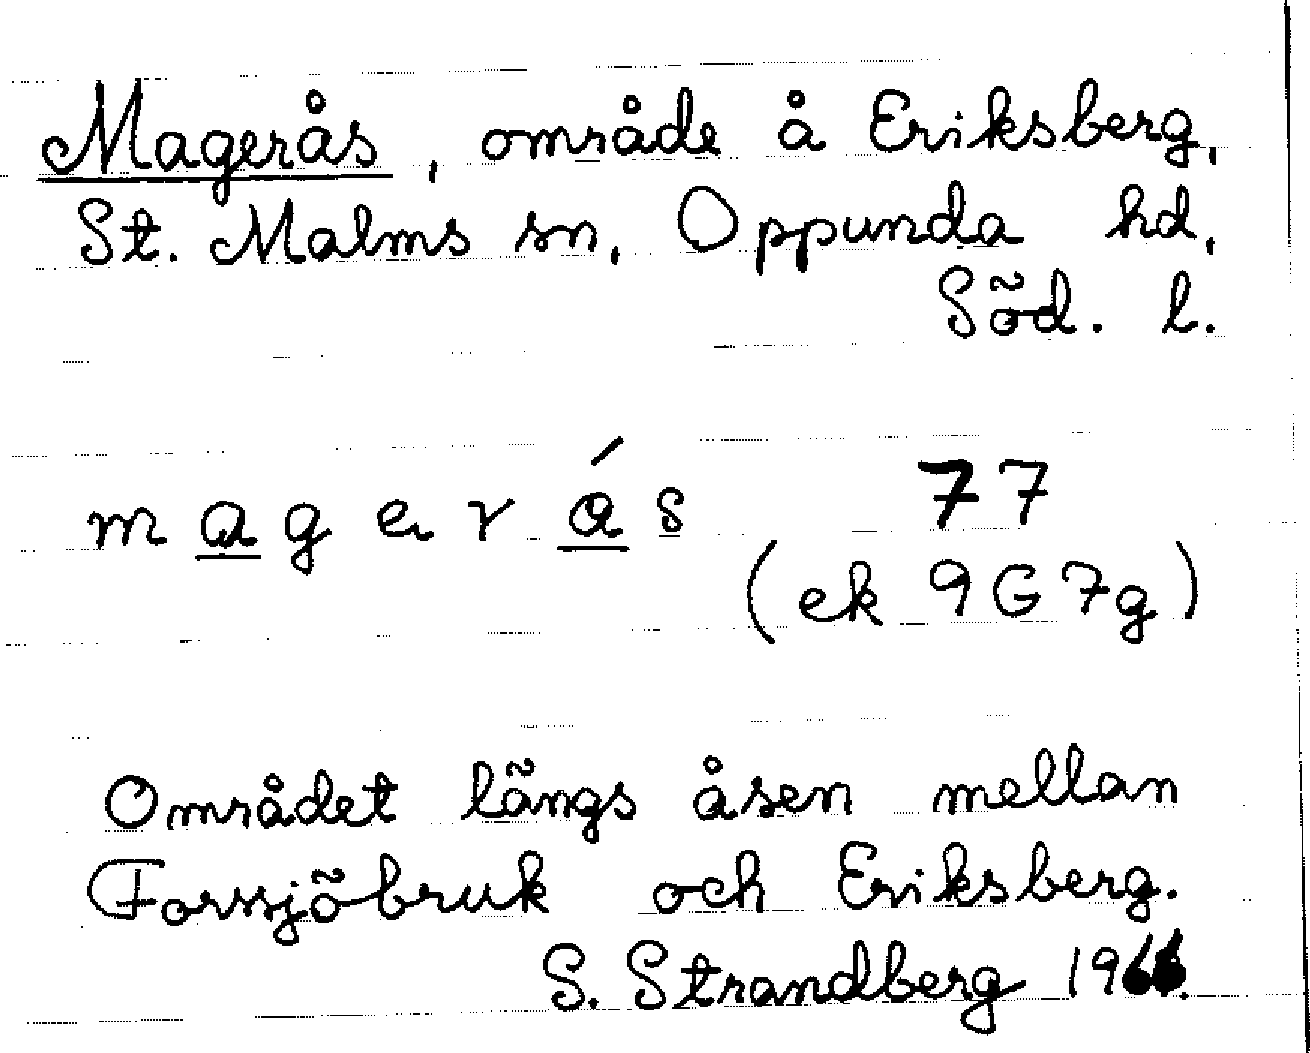 Magerås, område å Eriksberg,
St. Malms sn, Oppunda hd,
Söd. l.
m a g e r á s 77
(ek 9G7g)
Området längs åsen mellan
Forssjöbruk och Eriksberg.
S. Strandberg 1966.